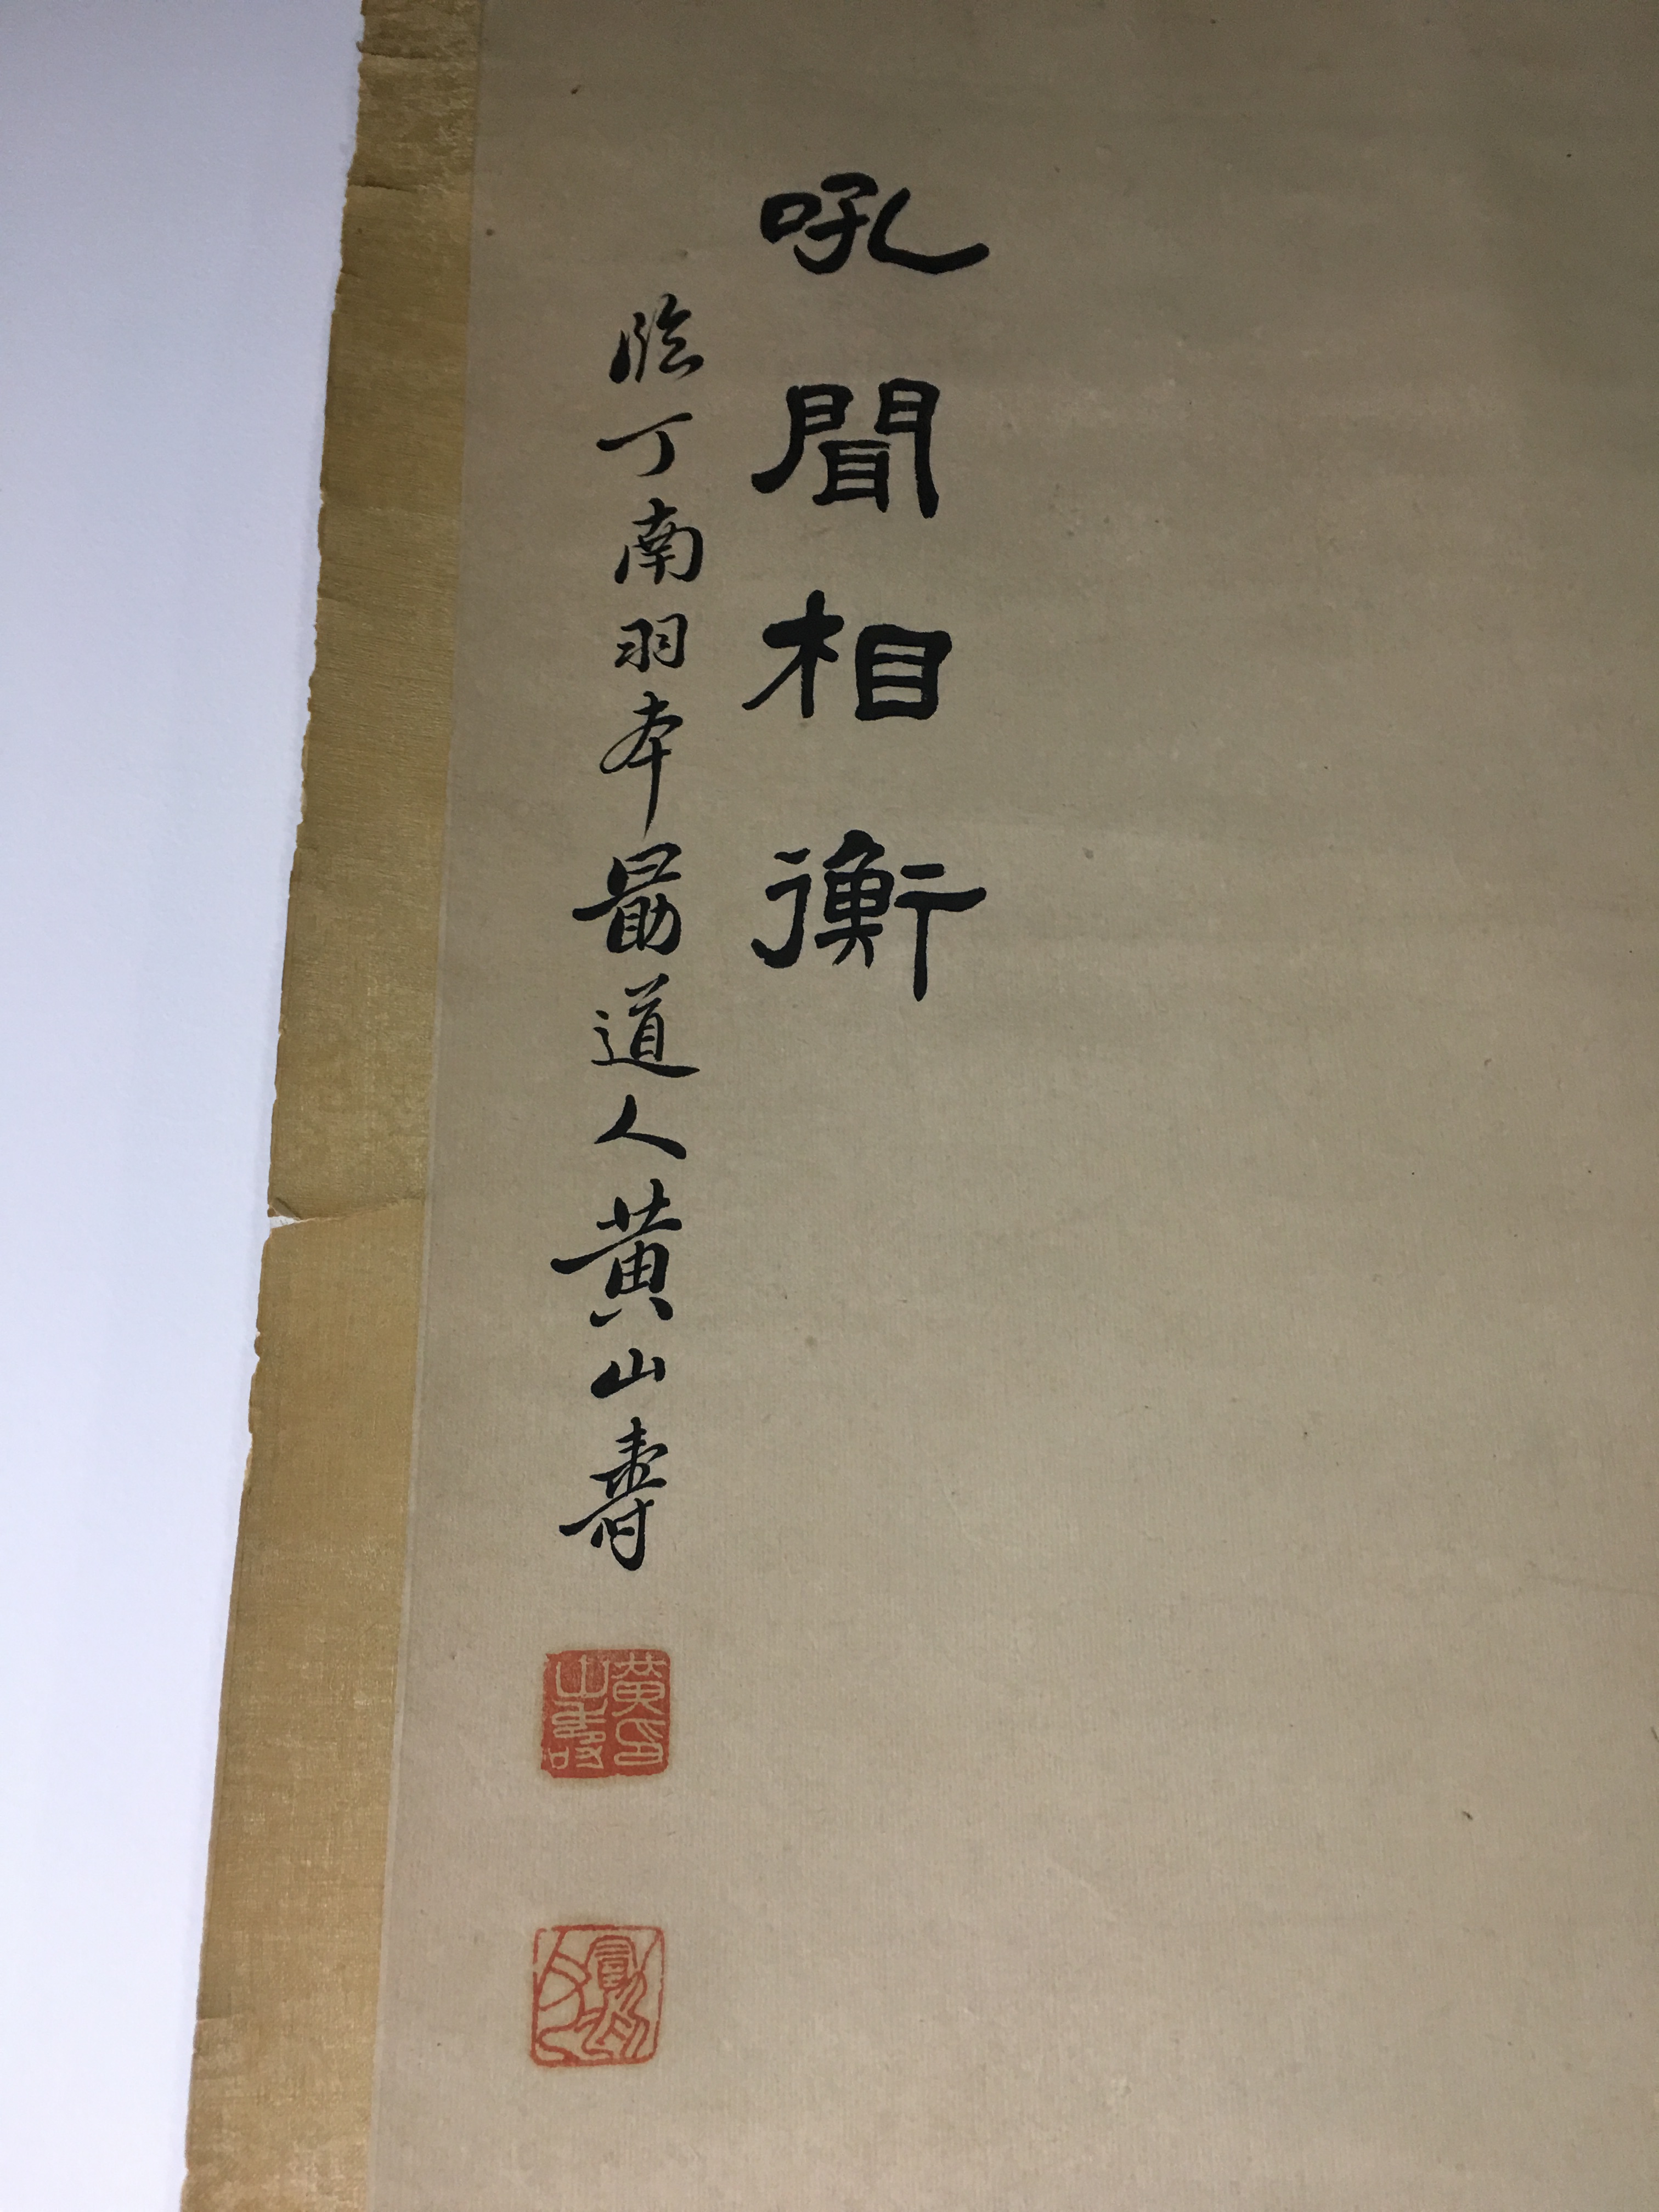 吼聞相衡
臨丁南羽本勗道人黃山壽
黃山壽印